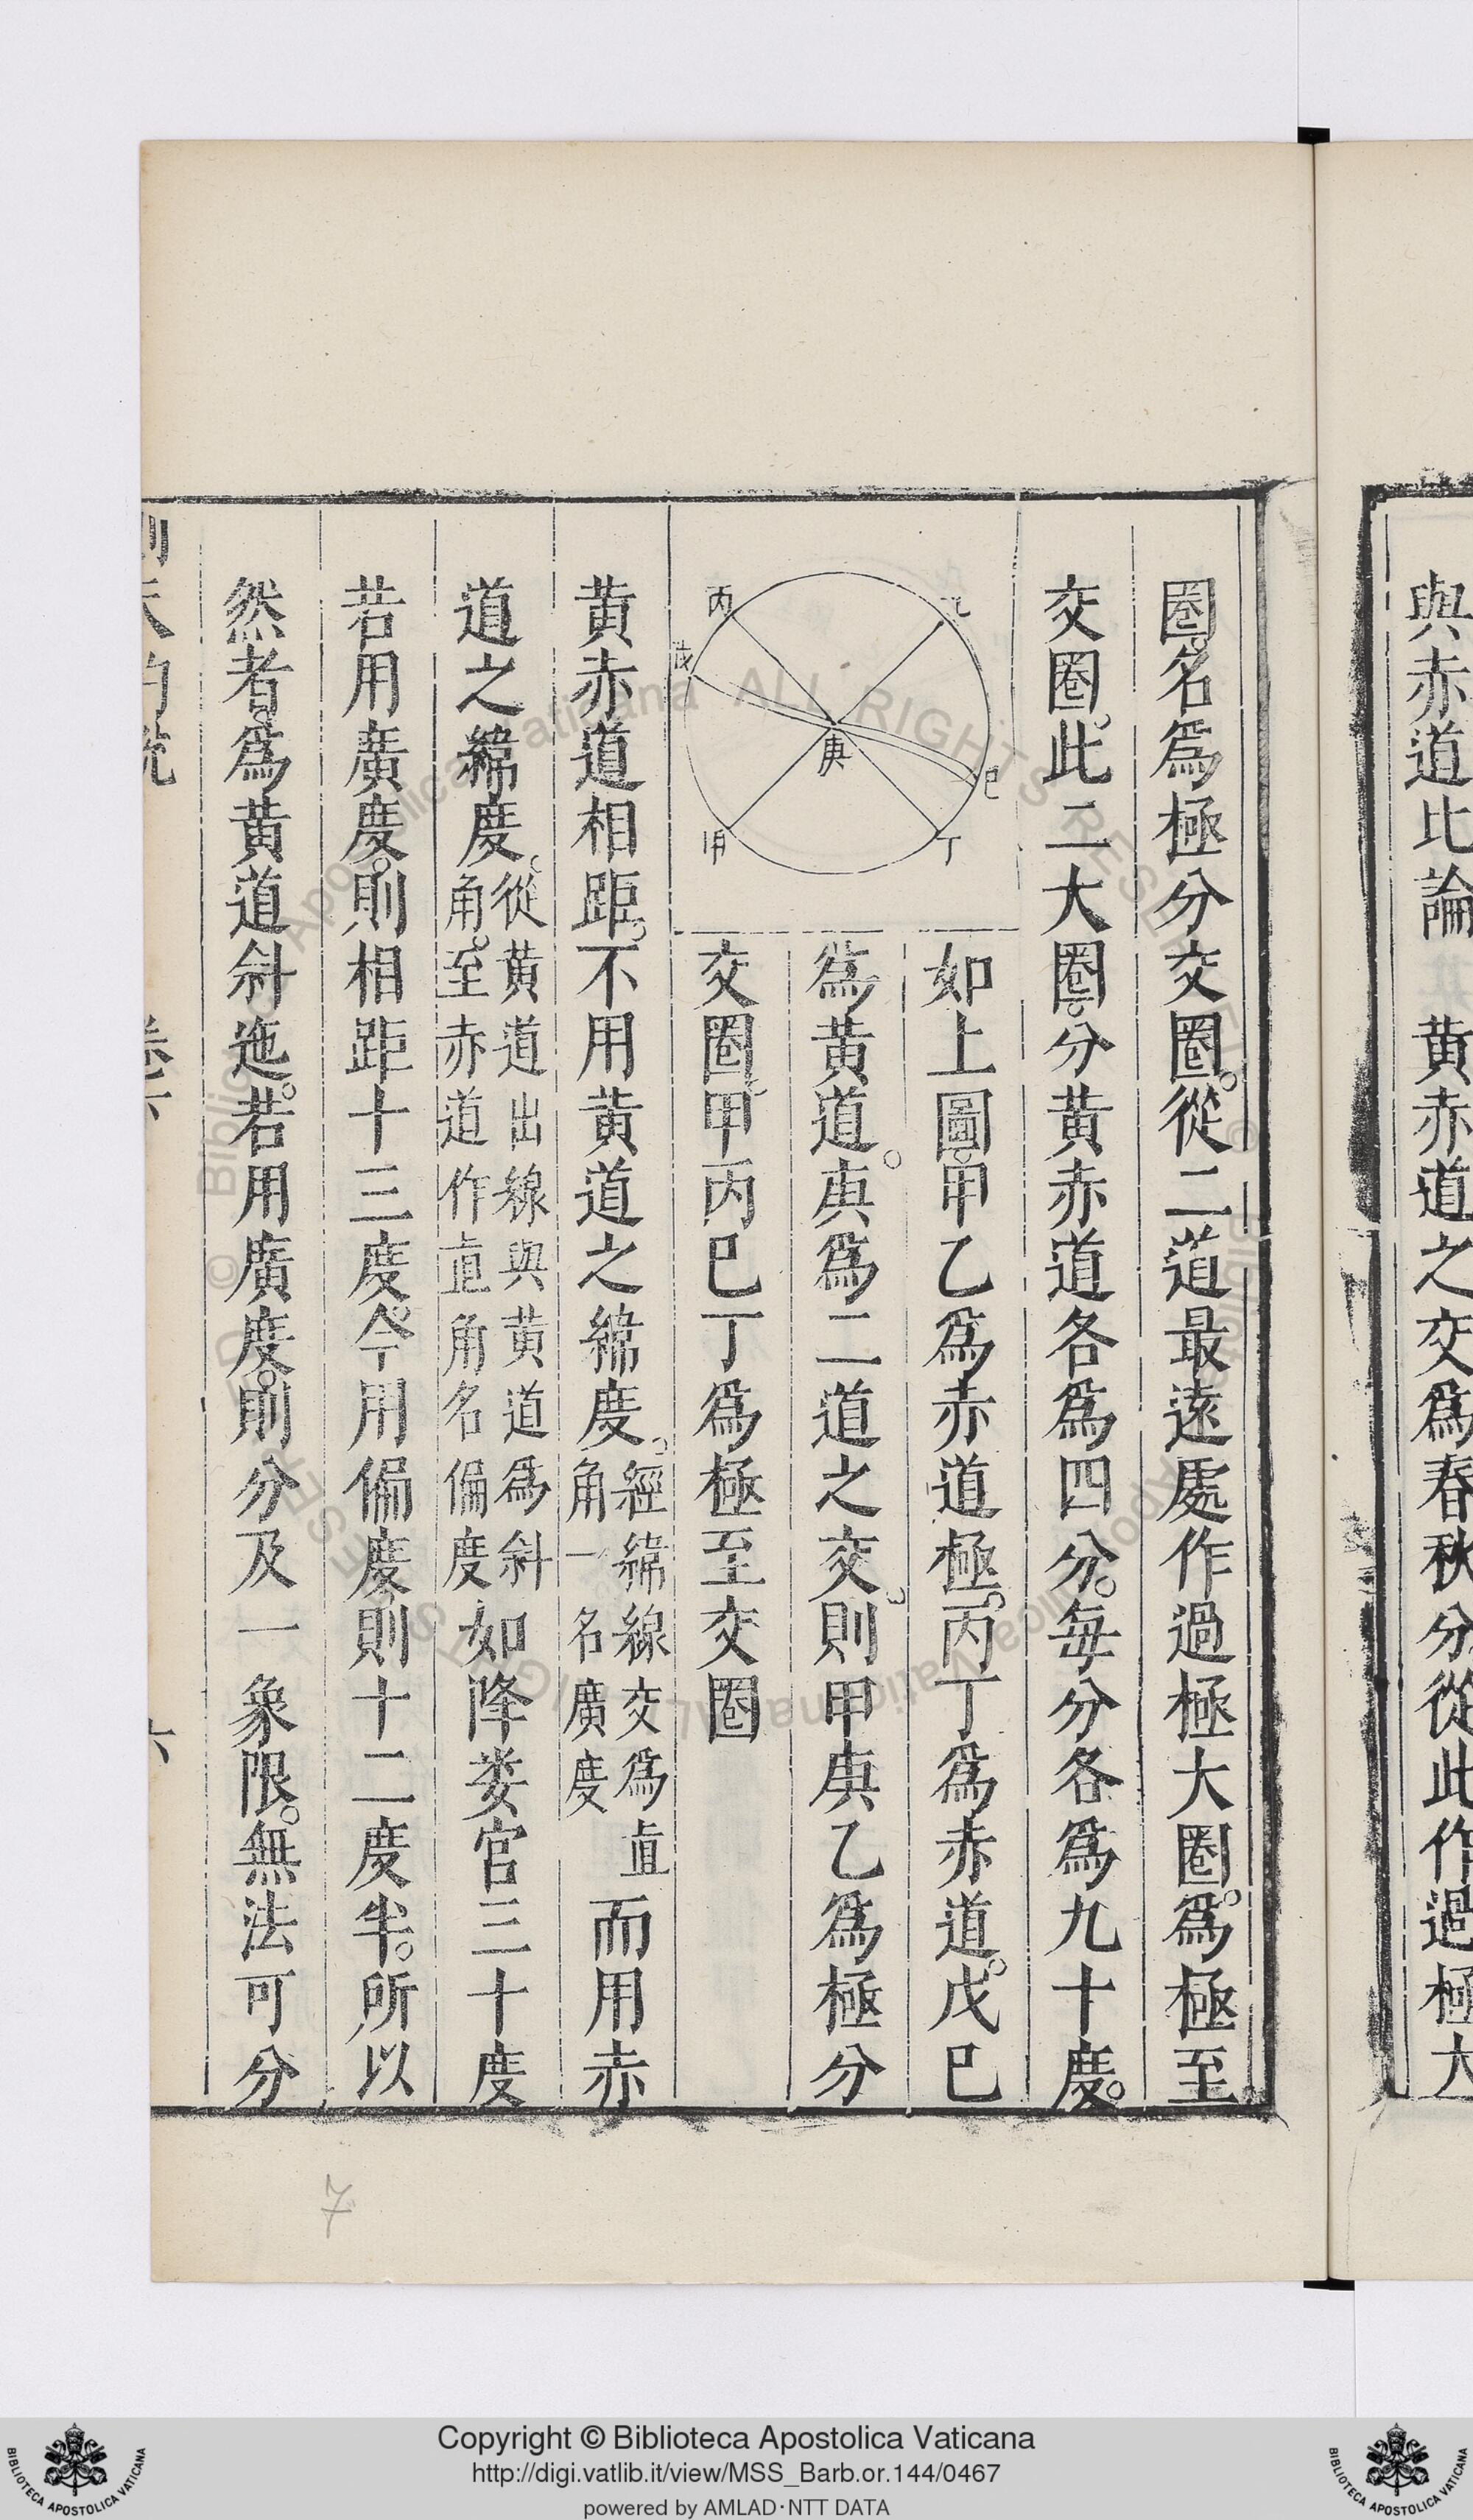 與赤道比論 黄赤道之交爲春秋分從此作過極大
圈。名爲極分交圈。從二道最遠處作過極大圈。爲極至
交圈。此二大圈。分黄赤道各爲四分。每分各爲九十度。
如上圖。甲乙爲赤道極。丙丁爲赤道。戊巳
爲黄道。庚爲二道之交。則甲庚乙爲極分
交圈。甲丙巳丁爲極至交圈
丙
戊
庚
巳
丁
黄赤道相距。不用黄道之緯度。經緯線交爲直角一名廣度而用赤
道之緯度。從黄道出線與黄道爲斜角。至赤道作直角名偏度如降婁宮三十度
若用廣度。則相距十三度。今用偏度。則十二度半。所以
然者。爲黄道斜迤。若用廣度。則分及一象限。無法可分
7
Copyright © Biblioteca Apostolica Vaticana
http://digi.vatlib.it/view/MSS_Barb.or.144/0467
powered by AMLAD·NTT DATA
BIBLIOTECA APOSTOLICA VATICANA
BIBLIOTECA APOSTOLICA VATICANA